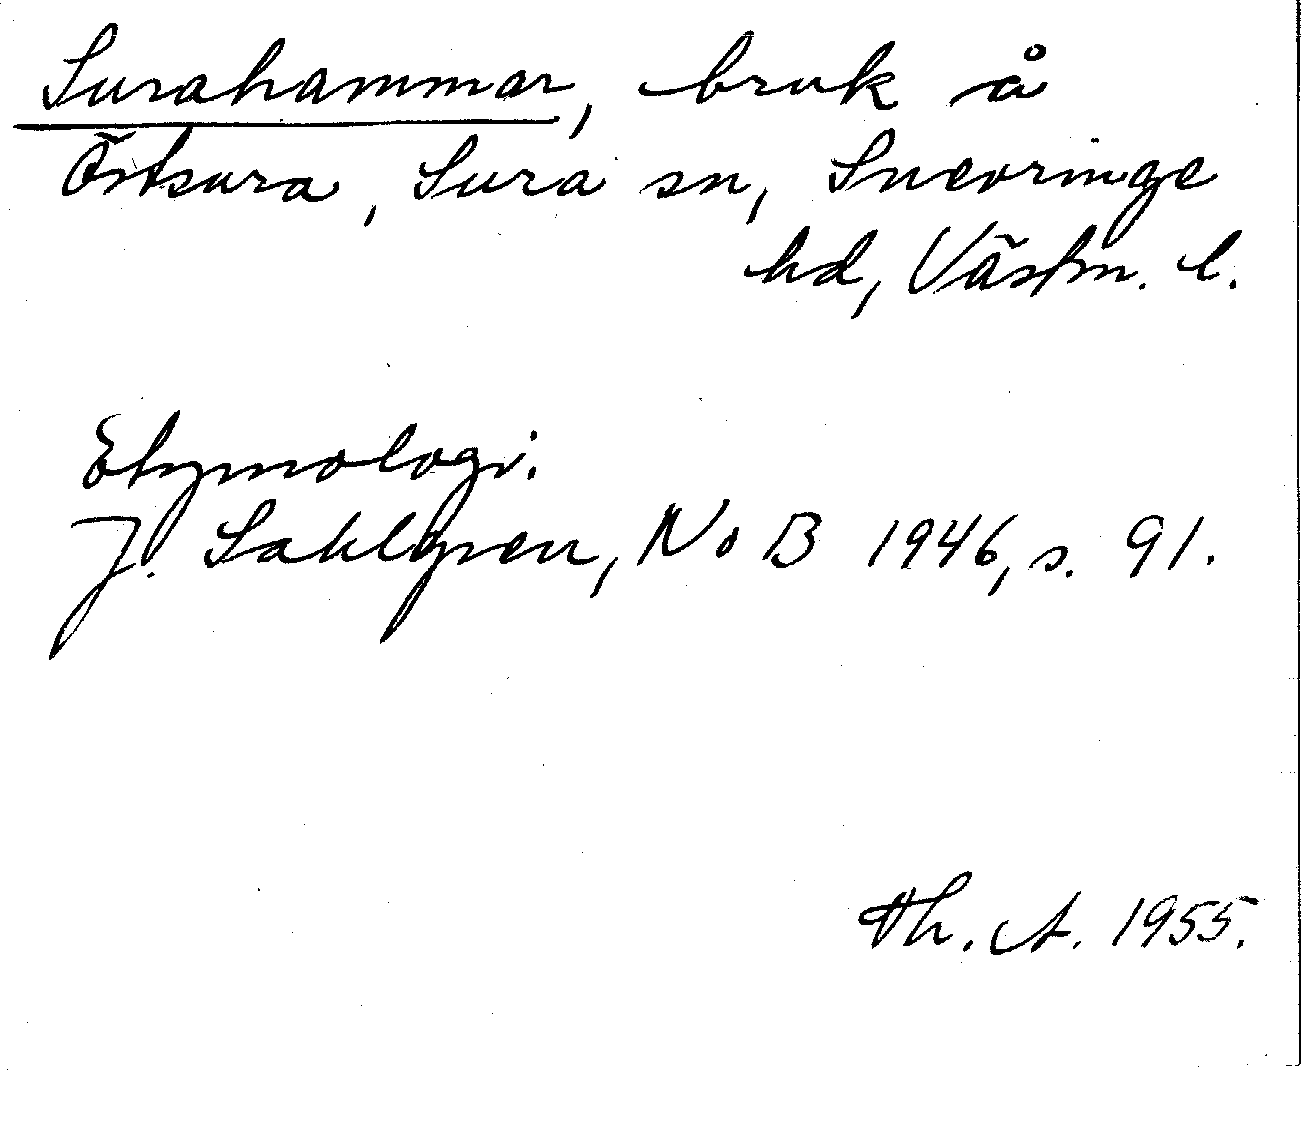 Surahammar, bruk å
Östsura, Sura sn, Snevringe
hd, Västm. l.
Etymologi.
J. Sahlgren, NoB 1946, s. 91.
Th. A. 1955.